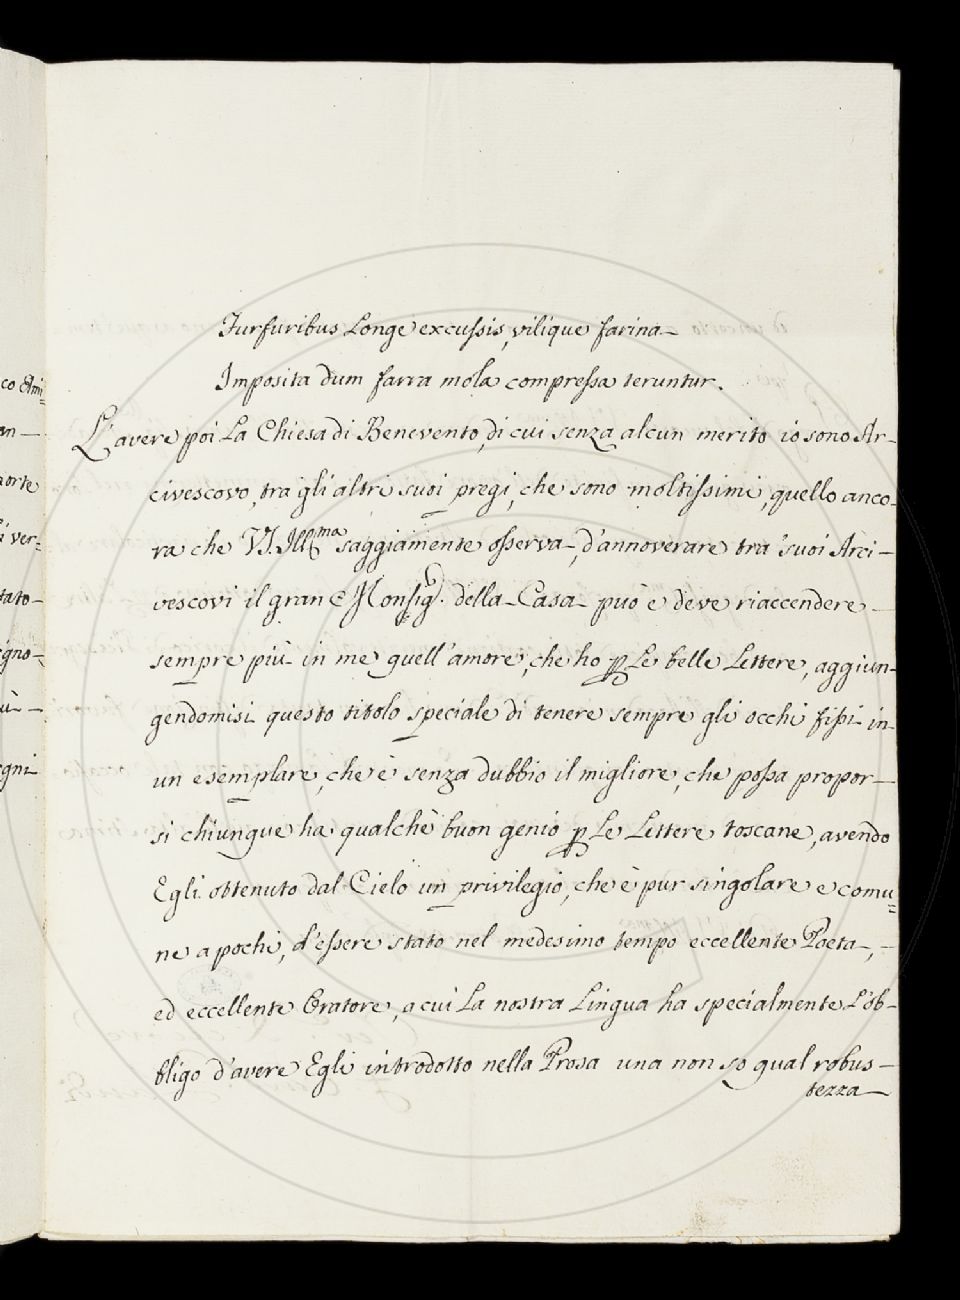 Furfuribus Longe excussis, vilique farina
Imposita dum farra mola compressa teruntur.
L'avere poi La Chiesa di Benevento, di cui senza alcun merito io sono Ar-
civescovo, tra gli altri suoi pregi, che sono moltissimi, quello anco-
ra che VS. Illma saggiamente osserva, d'annoverare tra suoi Arci-
vescovi il gran Monsig. della Casa può e deve riaccendere
sempre più in me quell'amore, che ho p Le belle Lettere, aggiun-
gendomisi questo titolo speciale di tenere sempre gli occhi fissi in
un esemplare, che è senza dubbio il migliore, che possa propor-
si chiunque ha qualche buon genio p Le Lettere toscane, avendo
Egli ottenuto dal Cielo un privilegio, che è pur singolare e comu=
ne a pochi, d'essere stato nel medesimo tempo eccellente Poeta,
ed eccellente Oratore, a cui La nostra Lingua ha specialmente L'ob-
bligo d'avere Egli introdotto nella Prosa una non so qual robus-
tezza